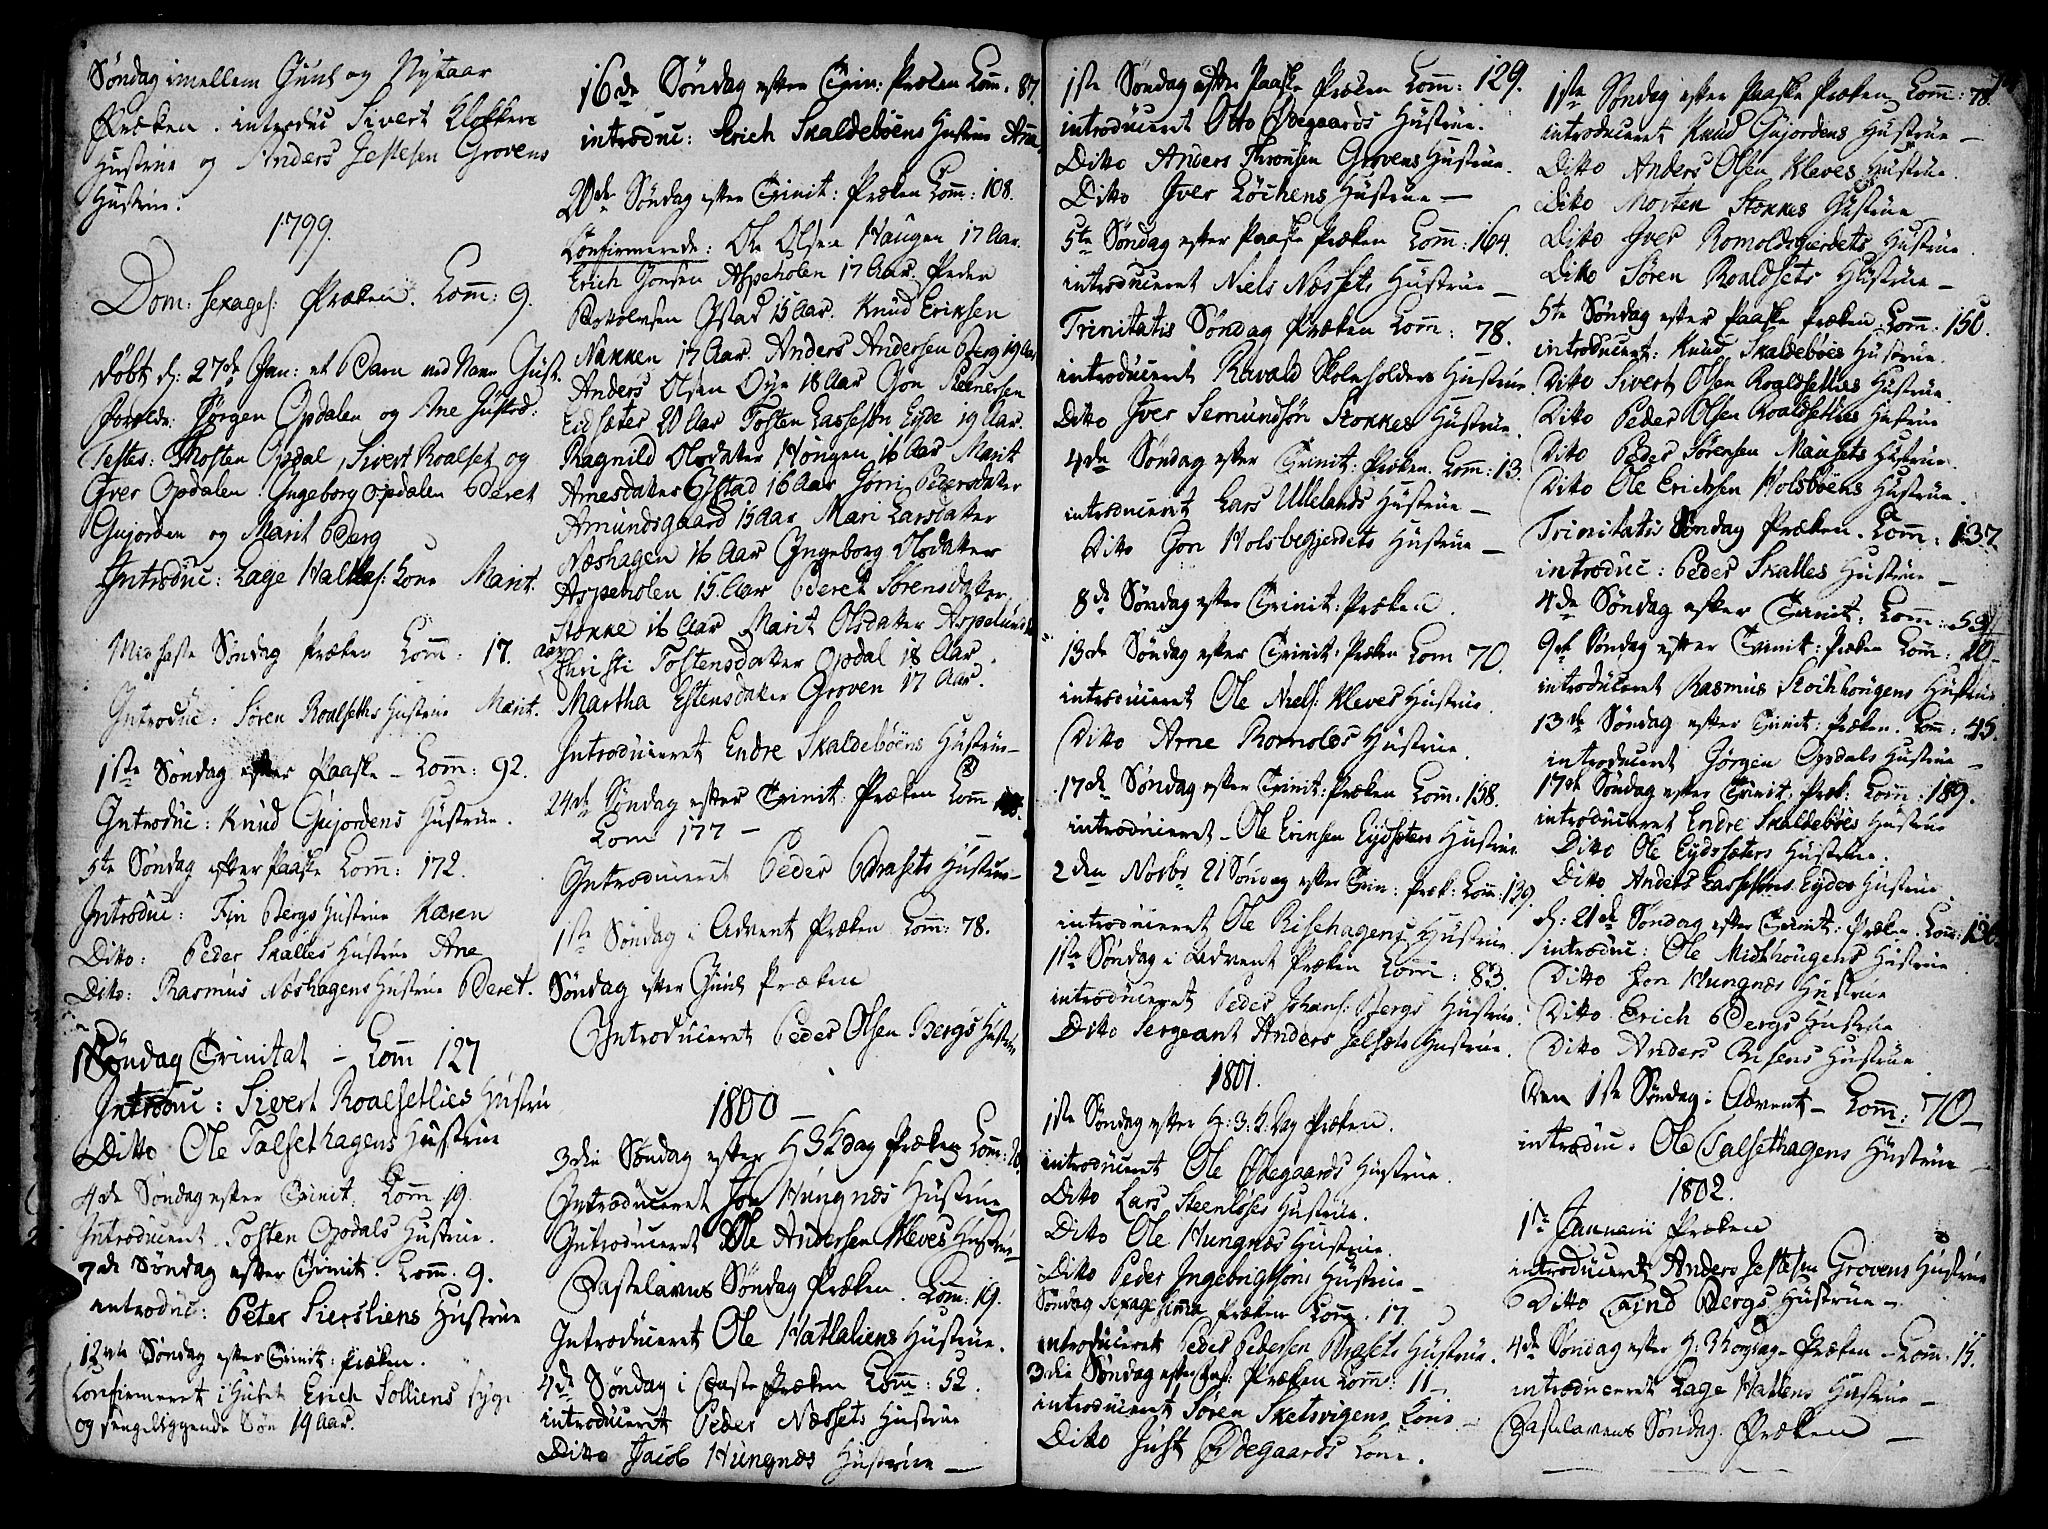 Søndag imellem Juul og Nytaar
Præken. introduc Sivert Klokkers
Hustrue og Anders Jestesen Grovens
Hustrue.
1799.
Dom: Sexages: Præken. Com: 9.
døbt d: 27de Jan: et Barn ved Navn Just
Forældr: Jørgen Opdalen og Ane Justsd:
Testes: Thosten Opdal, Sivert Roalset og
Iver Opdalen. Ingeborg Opdalen Beret
Gujorden og Marit Berg
Introduc: Lage Hallas: Kone Marit.
Midfaste Søndag Præken Com: 17.
Introduc: Søren Roalseths Hustrue Marit.
1ste Søndag efter Paaske - Com: 92.
Introduc: Knud Gujordens Hustrue.
5te Søndag efter Paaske Com: 172.
Introduc: Fin Bergs Hustrue Karen
Ditto: Peder Skalles Hustrue Ane
Ditto: Rasmus Næshagens Hustrue Beret.
Søndag Trinitat - Com 127
Introduc: Sivert Roalsetlies Hustru
Ditto Ole Talsethagens Hustrue
4de Søndag efter Trinit: Com 19.
Introduceret Tosten Opdals Hustrue.
7de Søndag efter Trinit: Com: 9.
introduc: Peter Liersliens Hustrue
12te Søndag efter Trinit: Præken.
Confirmeret i Huset Erich Solliens syge
og sengeliggende Søn 19 Aar.
16de Søndag efter Trin: Præken Com: 87.
introduc: Erich Skaldebøens Hustrue Ane
20de Søndag efter Trinit: Præken Com: 108.
Confirmerede: Ole Olsen Haugen 17 Aar.
Erich Jonsen Aspeholen 17 Aar. Peder
Gstad 15 Aar. Knud Eriksen
Nakken 17 Aar. Anders Andersen Berg 19 Aar
Anders Olsen Øye 18 Aar Jon Steenersen
Eidsæter 20 Aar Tosten Lassesøn Eyde 19 Aar.
Ragnild Olsdatter Hougen 16 Aar Marit
Arnesdatter Gstad 16 Aar Jorn Pedersdatter
Amundsgaard 15 Aar Mari Larsdatter
Næshagen 16 Aar Ingeborg Olsdatter
Aspeholen 15 Aar Beret Sørensdatter
Stokke 16 Aar Marit Olsdatter Aspelund
Aar Christi Tostensdatter Opdal 18 Aar.
Martha Estensdatter Groven 17 Aar.
Introduceret Endre Skaldebøens Hustrue
24de Søndag efter Trinit: Præken Com
Com 177 -
Introduceret Peder Brasets Hustrue
1ste Søndag i Advent Præken Com: 78.
Søndag efter Juul Præken
Introduceret Peder Olsen Bergs Hustrue
1800 -
3die Søndag efter H 3 K dag Præken Com: 20
Introduceret Jon Hungnæs Hustrue
Introduceret Ole Andersen Kleves Hustrue
Fastelavns Søndag Præken. Com: 19.
Introduceret Ole Hatlaliens Hustrue.
4de Søndag i Faste Præken Com: 52.
introduceret Peder Næssets Hustrue
Ditto Jacob Hungnæs Hustrue -
1ste Søndag efter Paaske Præken Com: 129.
introduceret Otto Ødegaards Hustrue.
Ditto Anders Thronsen Grovens Hustrue.
Ditto Iver Løchens Hustrue -
5te Søndag efter Paaske Præken Com: 164.
introduceret Niels Næssets Hustrue -
Trinitatis Søndag Præken Com: 78.
introduceret Ravald Skoleholders Hustrue
Ditto Iver Semundsøn Stokkes Hustrue.
4de Søndag efter Trinit: Præken. Com: 13.
introduceret Lars Ullelands Hustrue -
Ditto Jon Holsbøgjerdets Hustrue -
8de Søndag efter Trinit: Præken.
13de Søndag efter Trinit: Præken Com 70.
introduceret Ole Niels: Kleves Hustrue.
Ditto Arne Romolds Hustrue.
17de Søndag efter Trinit: Præken Com: 158.
introduceret - Ole Eriksen Eydsæters Hustrue
2den Novbr 21 Søndag efter Trin: Præk: Com: 139.
introduceret Ole Risehagens Hustrue
1ste Søndag i Advent Præken Com: 83.
introduceret Peder Johans: Bergs Hustrue.
Ditto Sergeant Anders Jelsets Hustrue.
1801.
1ste Søndag efter H: 3: K: Dag Præken.
introduceret Ole Ødegaards Hustrue.
Ditto Lars Steenløses Hustrue.
Ditto Ole Hungnæs Hustrue.
Ditto Peder Ingebrigtsøns Hustrue -
Søndag Sexagesima Præken Com: 17.
introduceret Peder Pedersen Brasets Hustrue.
3die Søndag efter Fast: Præken Com: 11
introduceret Søren Skelsvigens Kone -
Ditto Just Ødegaards Kone.
1ste Søndag efter Paaske Præken Com: 78.
introduceret Knud Gujordens Hustrue -
Ditto Anders Olsen Kleves Hustrue.
Ditto Morten Stokkes Hustrue
Ditto Iver Romoldsgierdets Hustrue.
Ditto Søren Roaldsets Hustrue -
5te Søndag efter Paaske Præken Com: 150.
introduceret: Knud Skaldebøes Hustrue.
Ditto Sivert Olsen Roaldsetlies Hustrue.
Ditto Peder Olsen Roaldsetlies Hustrue
Ditto Peder Sørensen Mausets Hustrue.
Ditto Ole Ericksen Holsbøens Hustrue.
Trinitatis Søndag Præken. Com: 137
introduc: Peder Skalles Hustrue -
4de Søndag efter Trinit: Com: 59
9de Søndag efter Trinit: Præken Com: 20
introduceret Rasmus Stockhougens Hustrue
13de Søndag efter Trinit: Præken. Com: 45.
introduceret Jørgen Opdals Hustrue -
17de Søndag efter Trinit: Præk: Com: 189.
introduceret Endre Skaldebøes Hustrue
Ditto Ole Eydsæters Hustrue.
Ditto Anders Lassesens Eydes Hustrue
d: 21de Søndag efter Trinit: Præken. Com:
introduc: Ole Midthougens Hustrue
Ditto Jon Hungnæs Hustrue
Ditto Erich Bergs Hustrue
Ditto Anders Risens Hustrue
Den 1ste Søndag i Advent - Com: 70 -
introduc. Ole Talsethagens Hustrue -
1802.
1ste Januarii Præken
introduceret Anders Jestesen Grovens Hustrue
Ditto Find Bergs Hustrue -
4de Søndag efter H. 3 Kongdag Præken - Com: 15.
introduceret Lage Hallens Hustrue -
Fastelavens Søndag Præken -